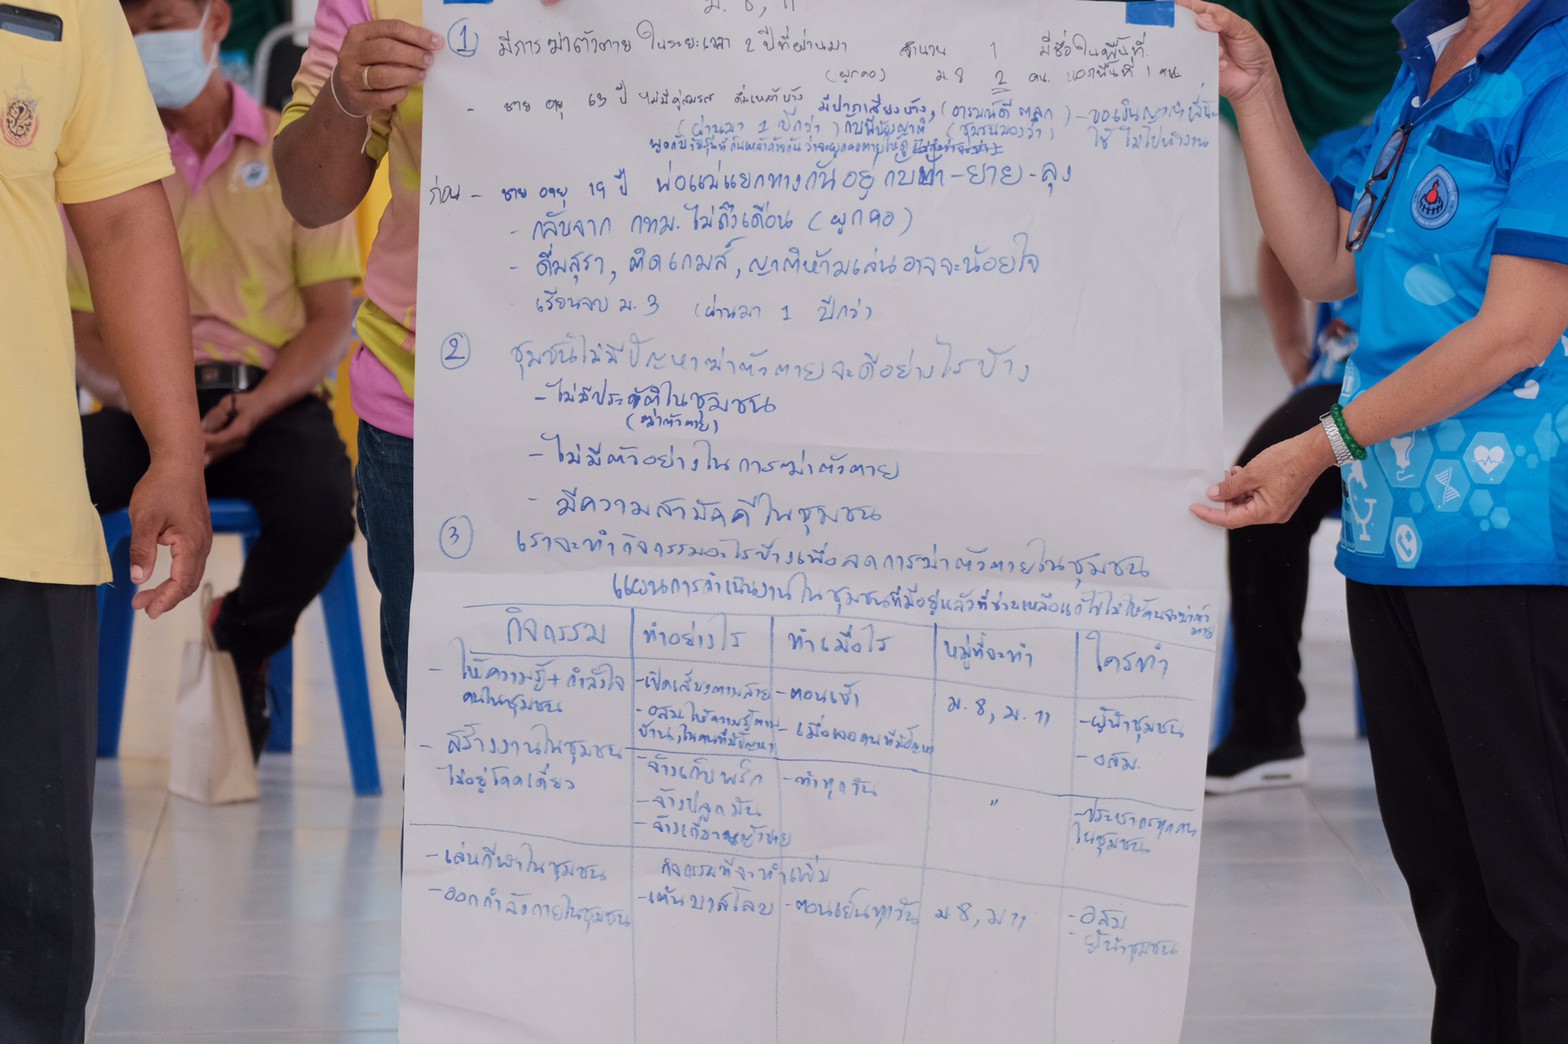 ม. 8, 11
① มีการฆ่าตัวตาย ในระยะเวลา 2 ปีที่ผ่านมา จำนวน 1 มีชื่อในพื้นที่
(ผูกคอ) ม 8 2 คน นอกพื้นที่ 1 คน
- ชาย อายุ 63 ปี ไม่มีคู่สมรส ดื่มเหล้าบ้าง มีปากเสียงบ้าง, (อารมณ์ดี ตลก) - ขอเงินญาติ
(ผ่านมา 1 ปีกว่า) (ชุมชนมองว่า) ใช้ ไม่ไปทำงาน
ก่อน - ชาย อายุ 19 ปี พ่อแม่แยกทางกันอยู่กับ - ยาย - ลุง
- กลับจาก กทม. ไม่ถึงเดือน (ผูกคอ)
- ดื่มสุรา, ติดเกมส์, ญาติห้ามเล่นอาจจะน้อยใจ
เรียนจบ ม. 3 (ผ่านมา 1 ปีกว่า)
② ชุมชนไม่มีปัญหาฆ่าตัวตายจะดีอย่างไรบ้าง
- ไม่มีประวัติในชุมชน
(ฆ่าตัวตาย)
- ไม่มีตัวอย่างในการฆ่าตัวตาย
- มีความสามัคคีในชุมชน
③ เราจะทำกิจกรรมอะไรบ้างเพื่อลดการฆ่าตัวตายในชุมชน
แผนการดำเนินงานในชุมชนที่มีอยู่แล้วที่ช่วยเหลือแก้ไขไม่ให้คนฆ่าตัว
ตาย
กิจกรรม ทำอย่างไร ทำเมื่อไร หมู่ที่จะทำ ใครทำ
- ให้ความรู้ + กำลังใจ - เปิดเสียงตามสาย - ตอนเช้า ม. 8, ม. 11 - ผู้นำชุมชน
คนในชุมชน - อสม ให้ความรู้ตาม - เมื่อพบคนที่มีปัญหา - อสม.
บ้าน, ในคนที่มีปัญหา
- สร้างงานในชุมชน - จ้างเก็บพริก - ทำทุกวัน " - ประชากรทุกคน
ไม่อยู่โดดเดี่ยว - จ้างปลูกมัน ในชุมชน
- จ้างเกี่ยวหญ้าขาย
- เล่นกีฬาในชุมชน กิจกรรมที่จะทำเพิ่ม
- ออกกำลังกายในชุมชน - เต้นบาสโลบ - ตอนเย็นทุกวัน ม 8, ม 11 - อสม
ผู้นำชุมชน